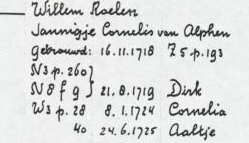 Willem Roelen
Jannigje Cornelis van Alphen
Getrouwd: 16.11.1718 Z5 p.193
N3 p.260
N8 f 9 } 21.8.1719 Dirk
W3 p.28 8.1.1724 Cornelia
40 24.6.1725 Aaltje